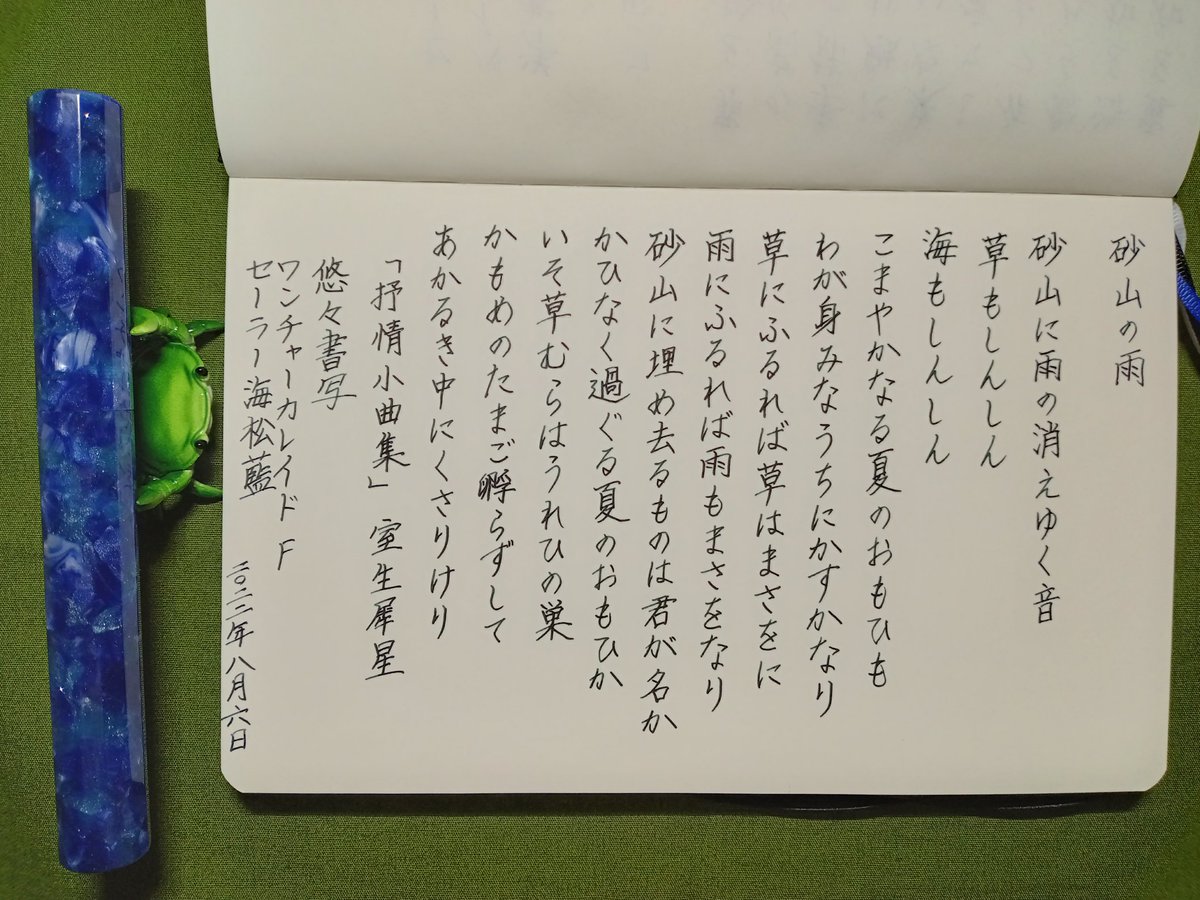 砂山の雨
砂山に雨の消えゆく音
草もしんしん
海もしんしん
こまやかなる夏のおもひも
わが身みなうちにかすかなり
草にふるれば草はまさをに
雨にふるれば雨もまさをなり
砂山に埋め去るものは君が名か
かひなく過ぐる夏のおもひか
いそ草むらはうれひの巣
かもめのたまご孵らずして
あかるき中にくさりけり
「抒情小曲集」 室生犀星
悠々書写
ワンチャーカレイド F
セーラー海松藍
二〇二二年八月六日